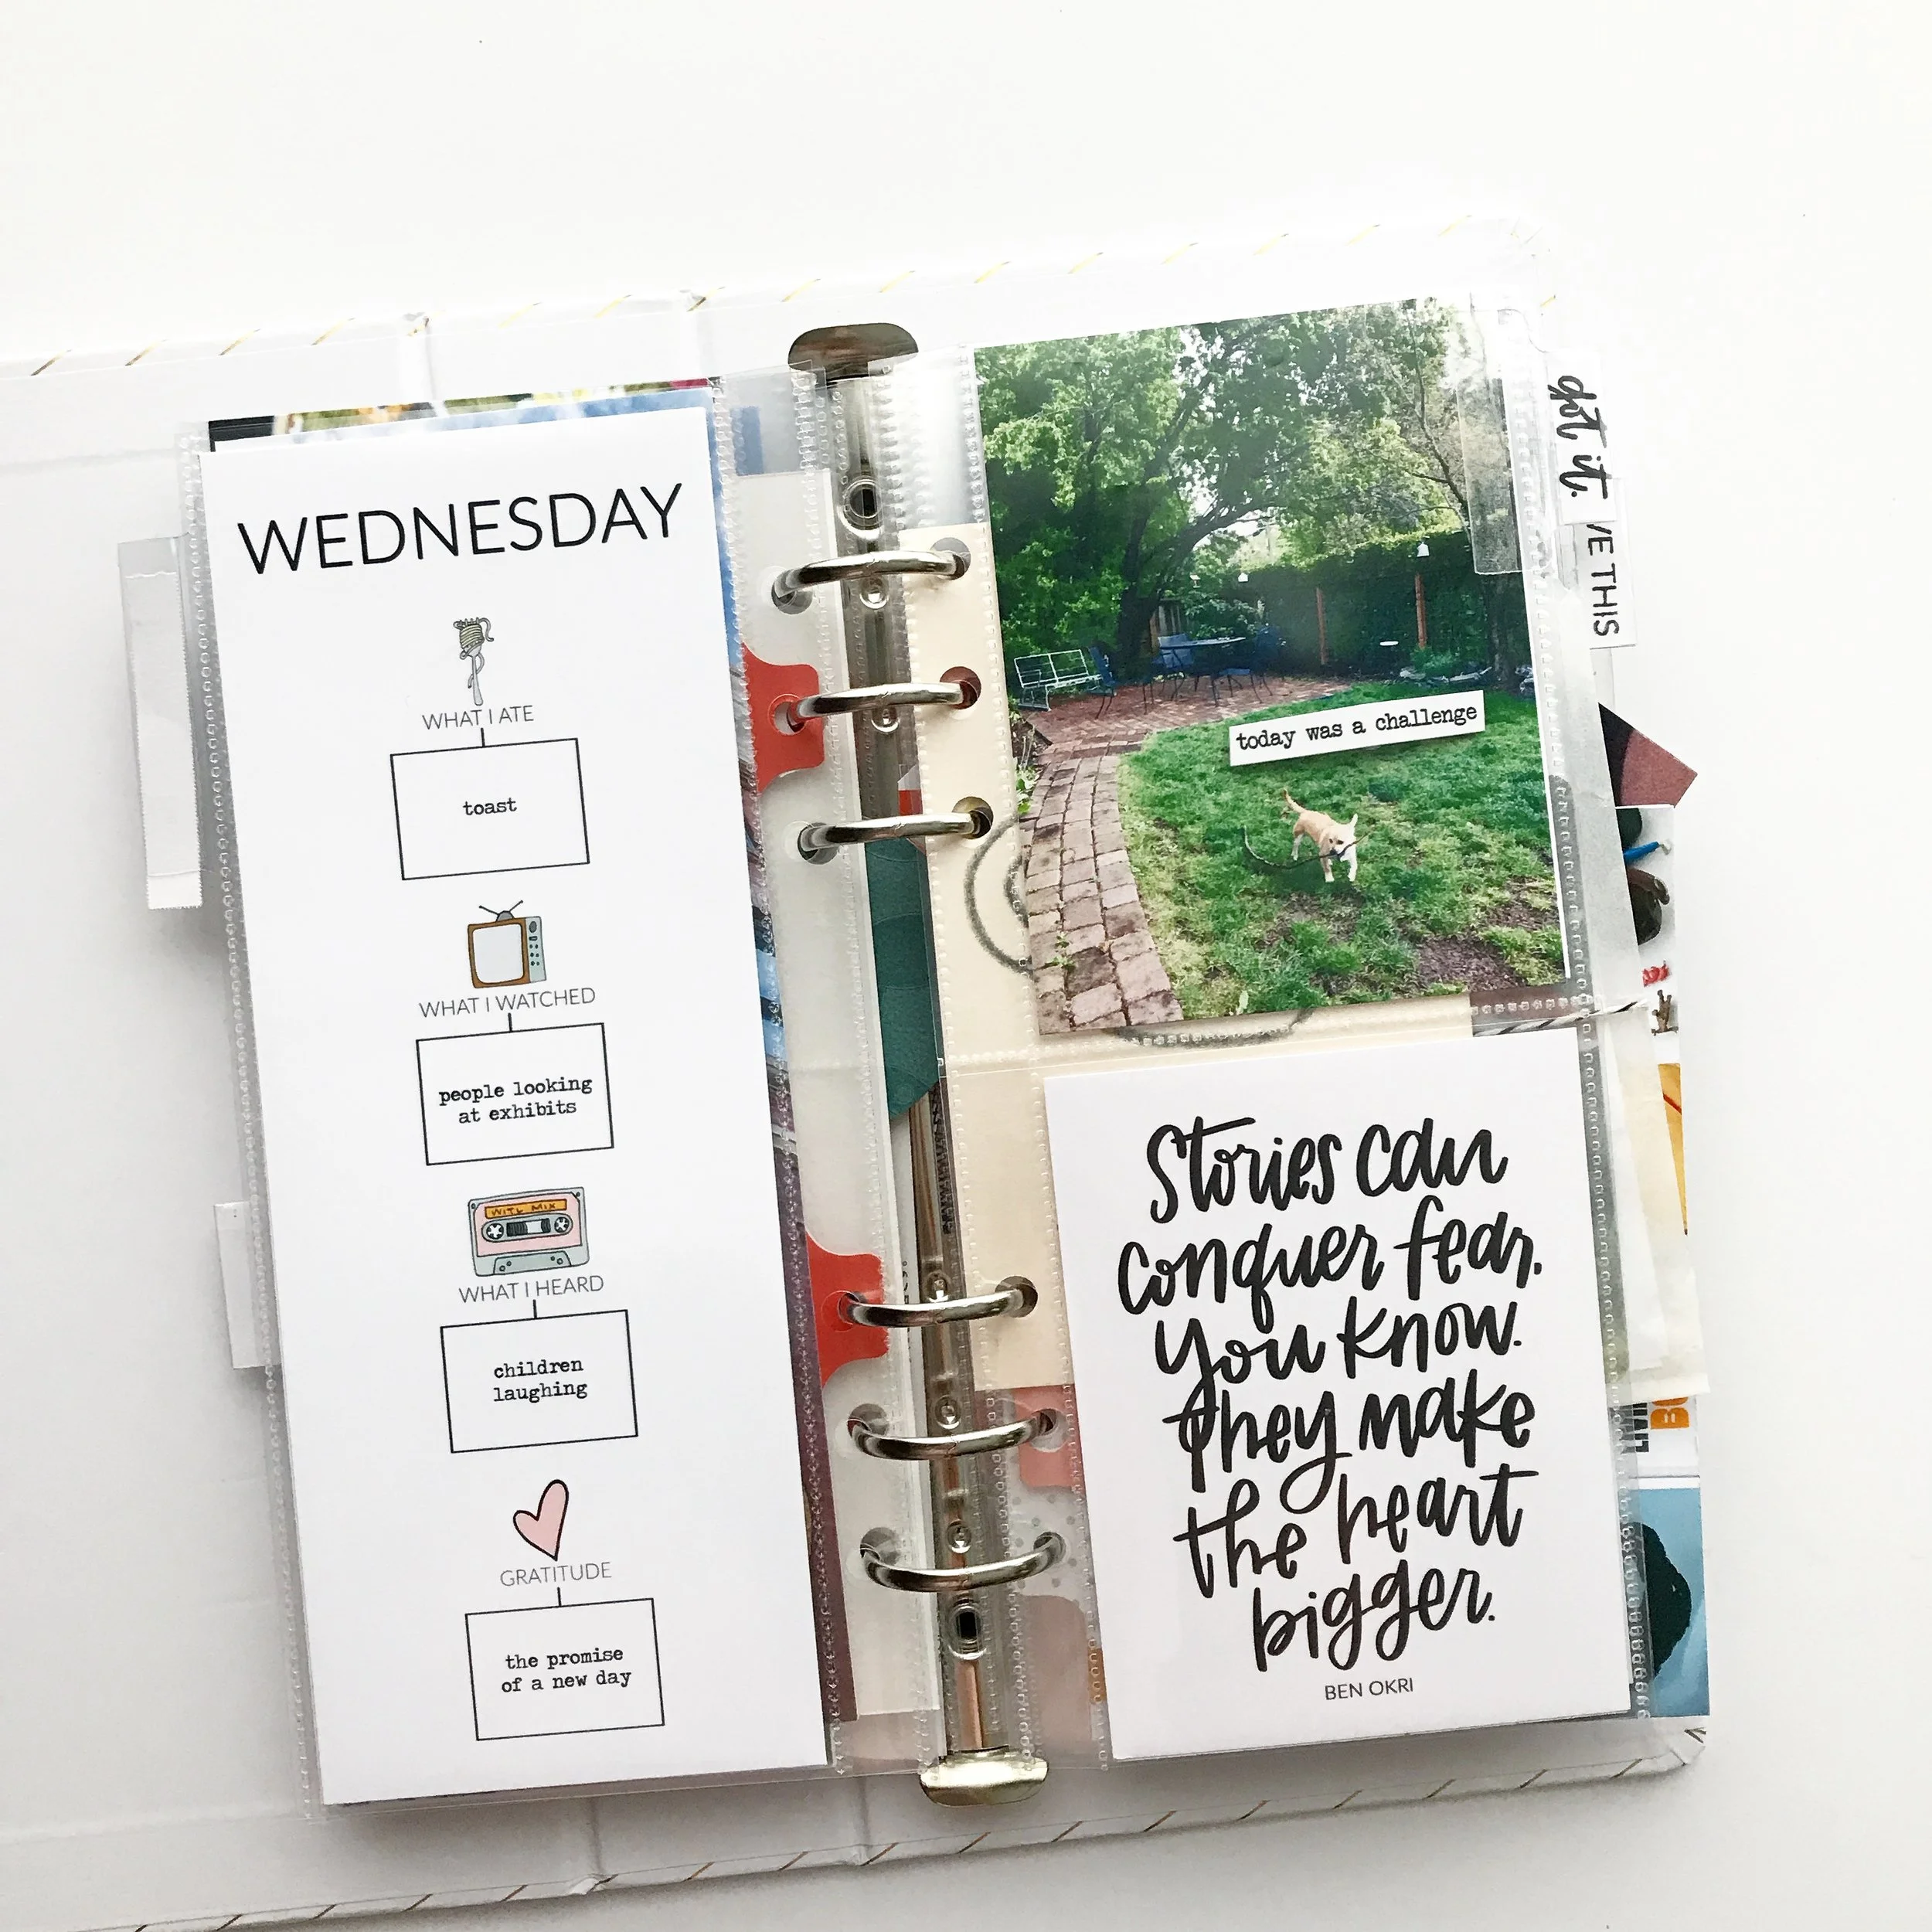 WEDNESDAY
WHAT I ATE
toast
WHAT I WATCHED
people looking
at exhibits
WITL MIX
WHAT I HEARD
children
laughing
GRATITUDE
the promise
of a new day
today was a challenge
got it.
VE THIS
Stories can
conquer fear,
you know.
They make
the heart
bigger.
BEN OKRI